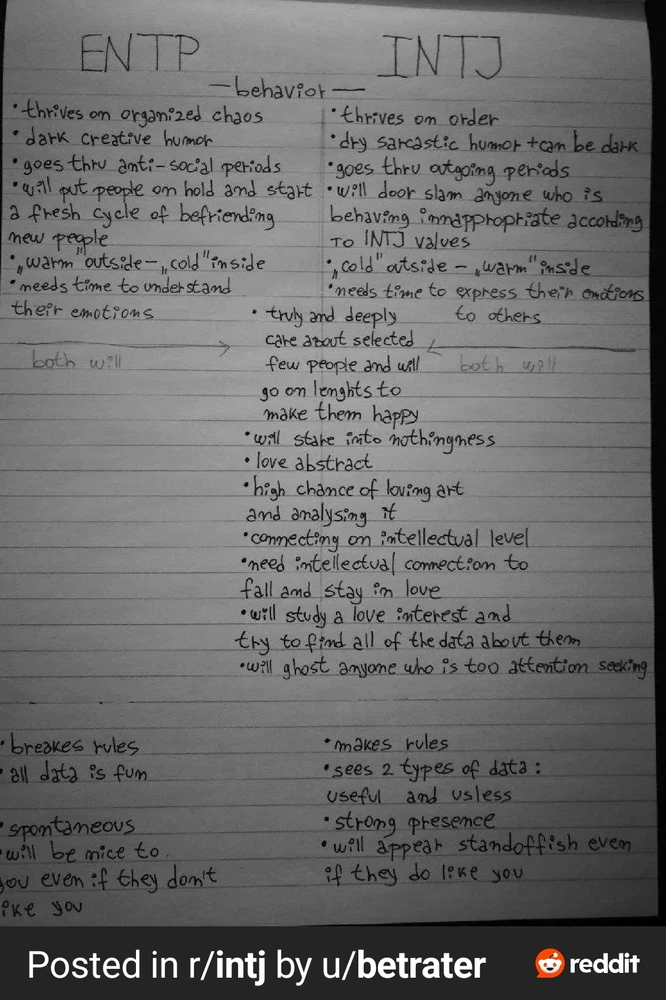 ENTP INTJ
—behavior—
•thrives on organized chaos
•dark creative humor
•goes thru anti-social periods
•will put people on hold and start
a fresh cycle of befriending
new people
•„warm" outside – „cold" inside
•needs time to understand
their emotions
both will
•thrives on order
•dry sarcastic humor +can be dark
•goes thru outgoing periods
•will door slam anyone who is
behaving innappropriate according
TO INTJ values
•„cold" outside – „warm" inside
•needs time to express their emotions
to others
both will
• truly and deeply
care about selected
few people and will
go on lenghts to
make them happy
•will stare into nothingness
•love abstract
•high chance of loving art
and analysing it
•connecting on intellectual level
•need intellectual connection to
fall and stay in love
•will study a love interest and
try to find all of the data about them
•will ghost anyone who is too attention seeking
•breakes rules
•all data is fun
•spontaneous
•will be nice to
you even if they don't
like you
•makes rules
•sees 2 types of data:
useful and usless
•strong presence
•will appear standoffish even
if they do like you
Posted in r/intj by u/betrater reddit